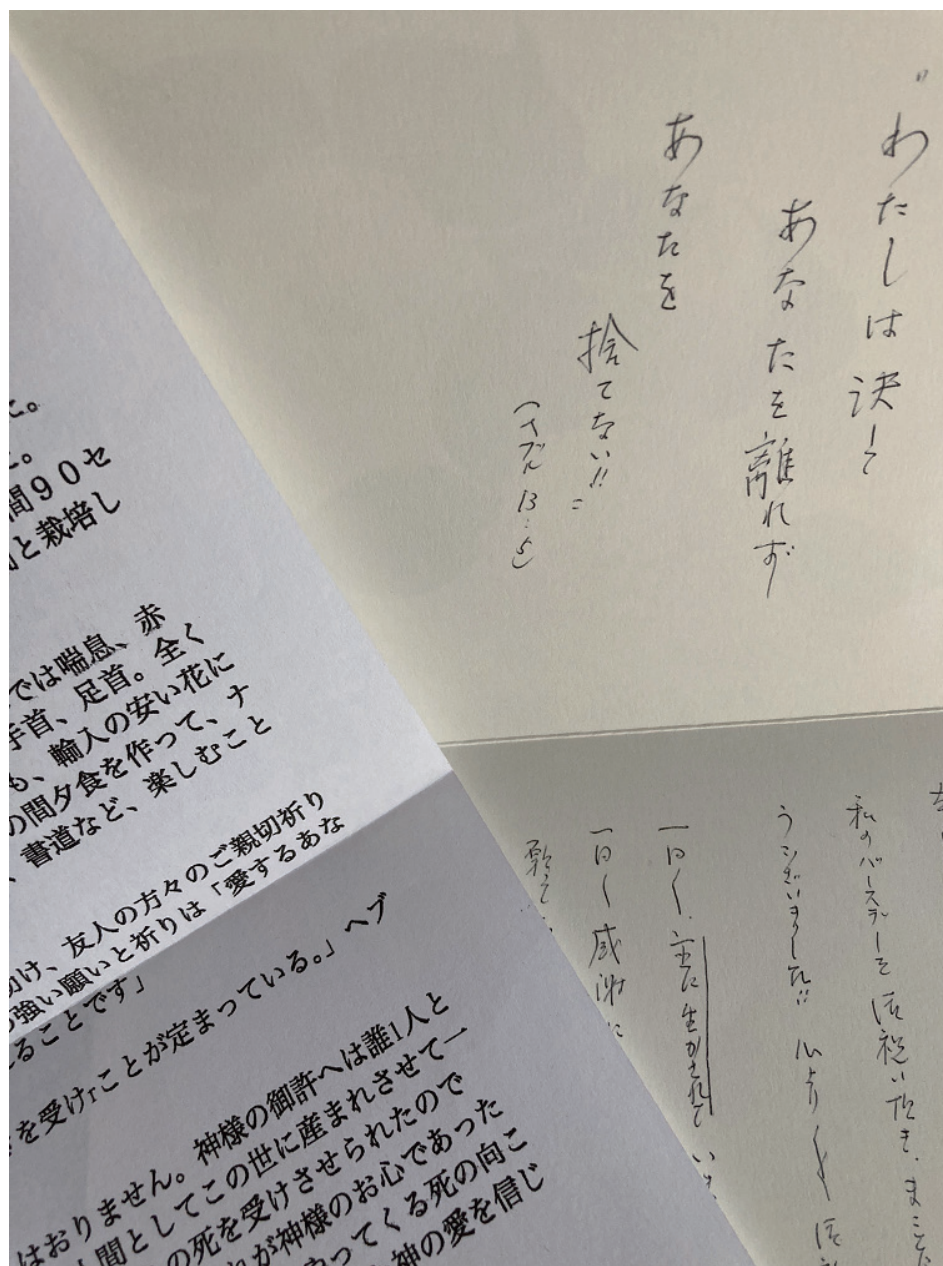 "わたしは決して
あなたを離れず
あなたを
捨てない!!"
(ヘブル13:5)
私のバースデーを
うございました!! 心より
一日〱、主に生かされて
一日〱感謝に
た。
た。
間90セ
と栽培し
では喘息、赤
手首、足首。全く
も、輸入の安い花に
の間夕食を作って、ナ
、書道など、楽しむこと
助け、友人の方々のご親切祈り
強い願いと祈りは「愛するあな
ることです」
を受けrことが定まっている。」ヘブ
はおりません。神様の御許へは誰1人と
人間としてこの世に産まれさせて一
の死を受けさせられたので
が神様のお心であった
ってくる死の向こ
神の愛を信じ